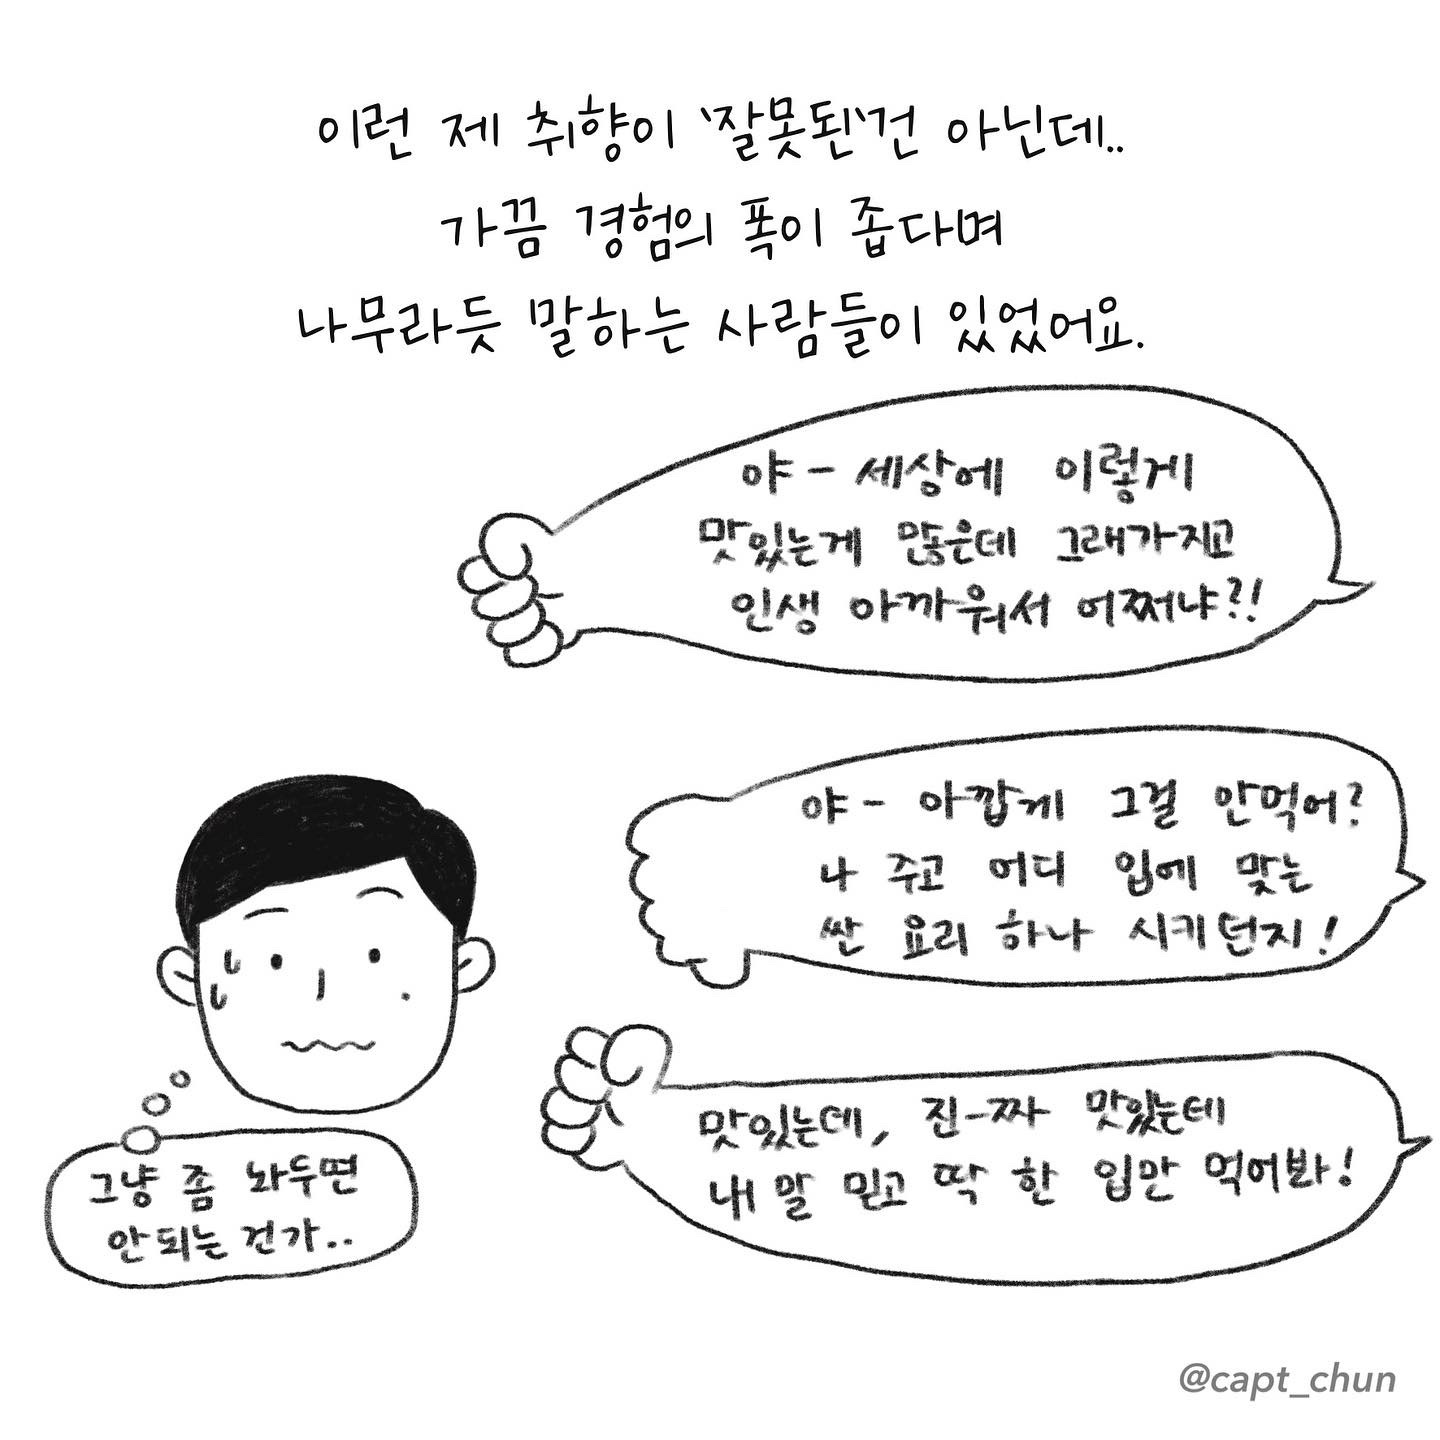 이런 제 취향이 '잘못된'건 아닌데..
가끔 경험의 폭이 좁다며
나무라듯 말하는 사람들이 있었어요.
야- 세상에 이렇게
맛있는게 많은데 그래가지고
인생 아까워서 어쩌냐?!
야- 아깝게 그걸 안먹어?
나 주고 어디 입에 맞는
싼 요리 하나 시키던지!
맛있는데, 진-짜 맛있는데
내 말 믿고 딱 한 입만 먹어봐!
그냥 좀 놔두면
안되는 건가..
@capt_chun